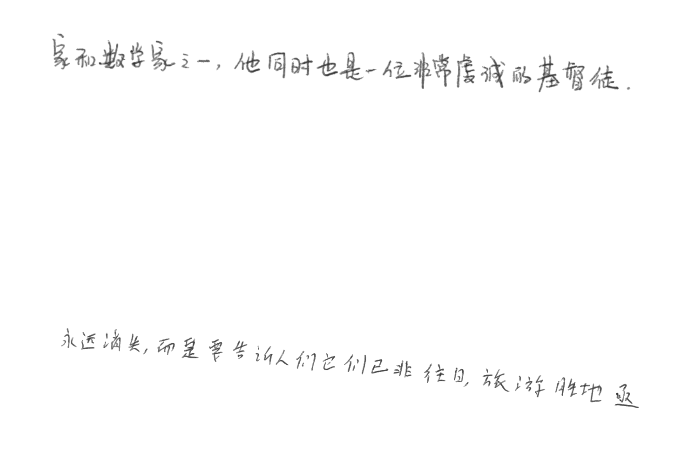 家和数学家之一，他同时也是一位非常虔诚的基督徒．
永远消失，而是要告诉人们它们已非往日，旅游胜地亟